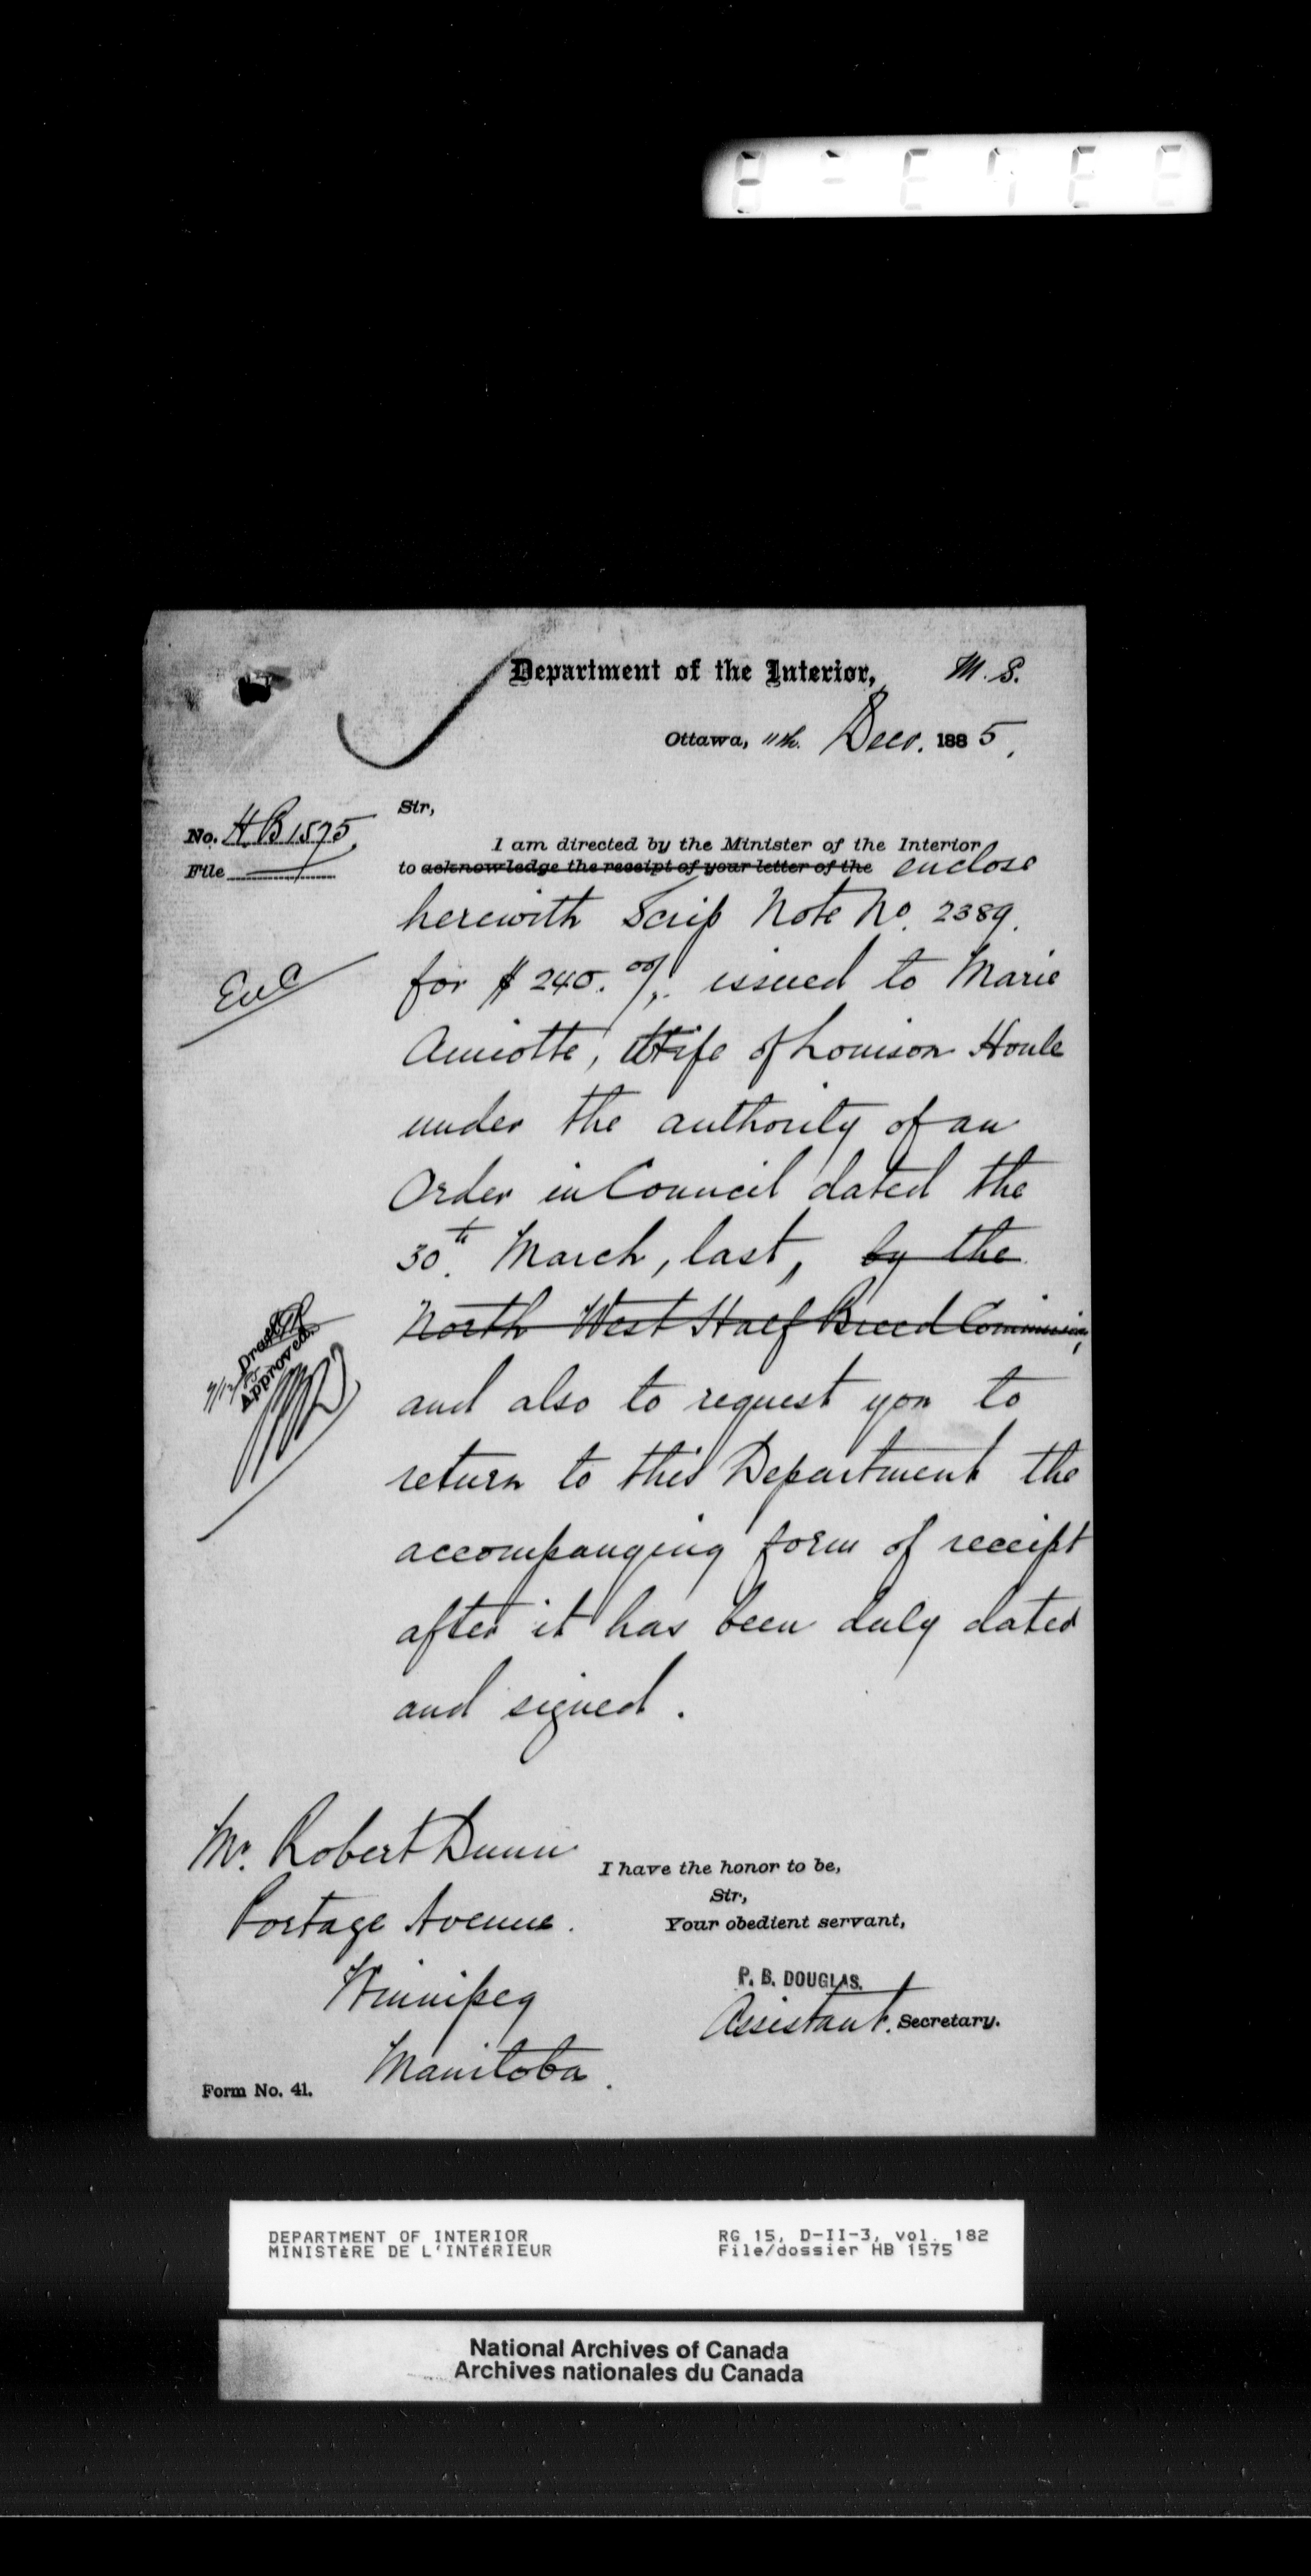 Department of the Interior, M. S.
Ottawa, 11th. Decr. 1885.
Sir,
No. H.B 1575.
File
I am directed by the Minister of the Interior
to acknowledge the receipt of your letter of the enclose
herewith Scrip Note No. 2389.
for $ 240. 00/. issued to Marie
Enc
Amiotte, Wife of Louison Houle
under the authority of an
Order in Council dated the
30th. March, last, by the
North West Half Breed Commission,
Draft
Approved.
and also to request you to
return to this Department the
accompanying form of receipt
after it has been duly dated
and signed.
Mr. Robert Dunn
I have the honor to be,
Sir,
Portage Avenue.
Your obedient servant,
Winnipeg
P. B. DOUGLAS.
Assistant. Secretary.
Manitoba.
Form No. 41.
DEPARTMENT OF INTERIOR RG 15, D-II-3, vol. 182
MINISTÈRE DE L'INTÉRIEUR File/dossier HB 1575
National Archives of Canada
Archives nationales du Canada